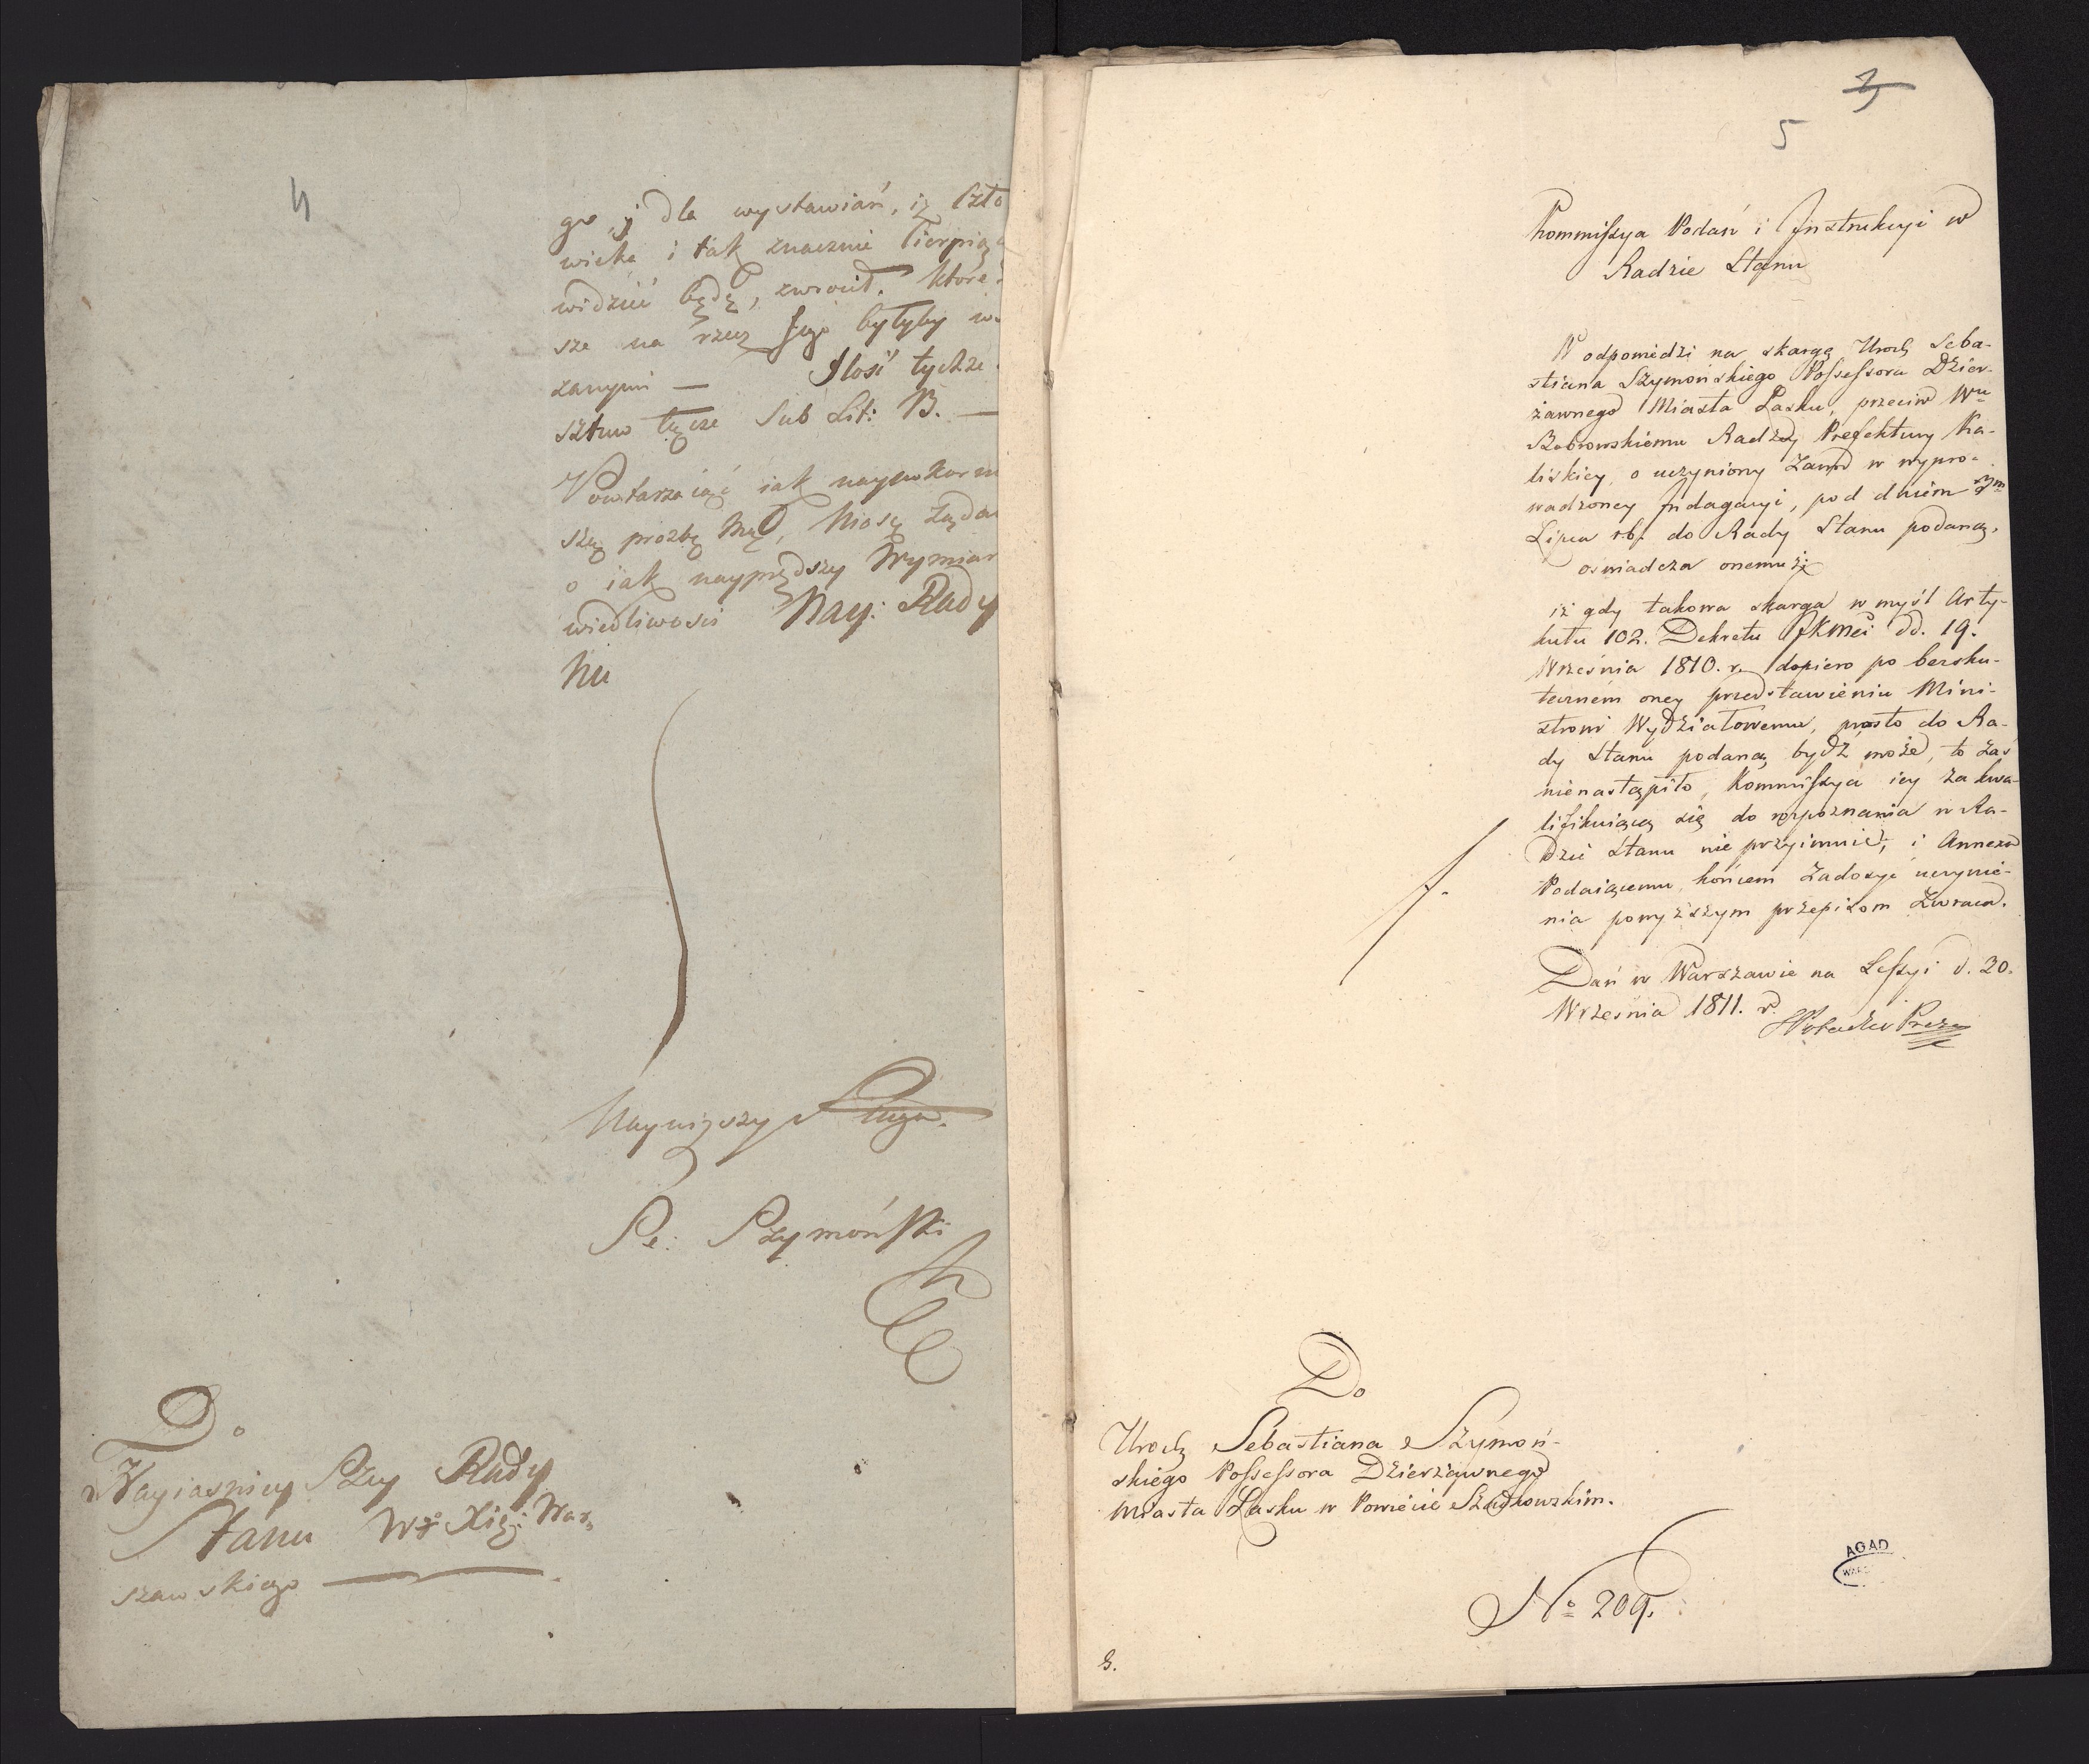 4
go, j dla wystawiań, iż Czło
wieka i tak znacznie Cierpiąc
widzieć będę, zwrocił. które
sze na rzecz Jego byłyby
zanymi — Ilość tychże
sztuw łączę Sub Lit: B. —
Powtarzaiąć iak nayuko
szą prozbę Mą, Niosę Żąda
o iak nayprędszy Wymiar
wiedliwości Nay: Rady
Nu
Nayniższy Sługa.
Se: Szymoński
Do
Nayiasnieyszey Rady
Stanu Wgo Xięs: War,
szawskiego —
5
Kommissya Podań i Instrukcyi w
Radzie Stanu
W odpowiedzi na skargę Urodz Seba-
stiana Szymońskiego Possessora Dzier-
żawnego Miasta Łasku, przeciw Wu
Bobrowskiemu Radzcy Prefektury Ka-
liskiey, o uczyniony Zawod w wypro-
wadzoney Indagacyi, pod dniem
Lipca rb. do Rady Stanu podaną,
oswiadcza onemuż
iż gdy takowa skarga w myśl Arty-
kułu 102. Dekretu JKMci dd. 19.
Września 1810. r. dopiero po bezsku-
tecznem oney przedstawieniu Mini-
strowi Wydziałowemu, prosto do Ra-
dy Stanu podaną bydź może, to zaś
nienastąpiło, Kommissya iey za kwa-
lifikuiącą się do rozpoznania w Ra-
dzie Stanu nie przyimuie, i Annexa
Podaiącemu końcem zadosyć uczynie-
nia powyższym przepisom zwraca.
Dań w Warszawie na Sessyi d. 20.
Września 1811. r.
Potocki Prezes
Do
Urodz Sebastiana Szymoń-
skiego Possessora Dzierżawnego
Miasta Łasku w Powiecie Szadkowskim.
No 209.
AGAD